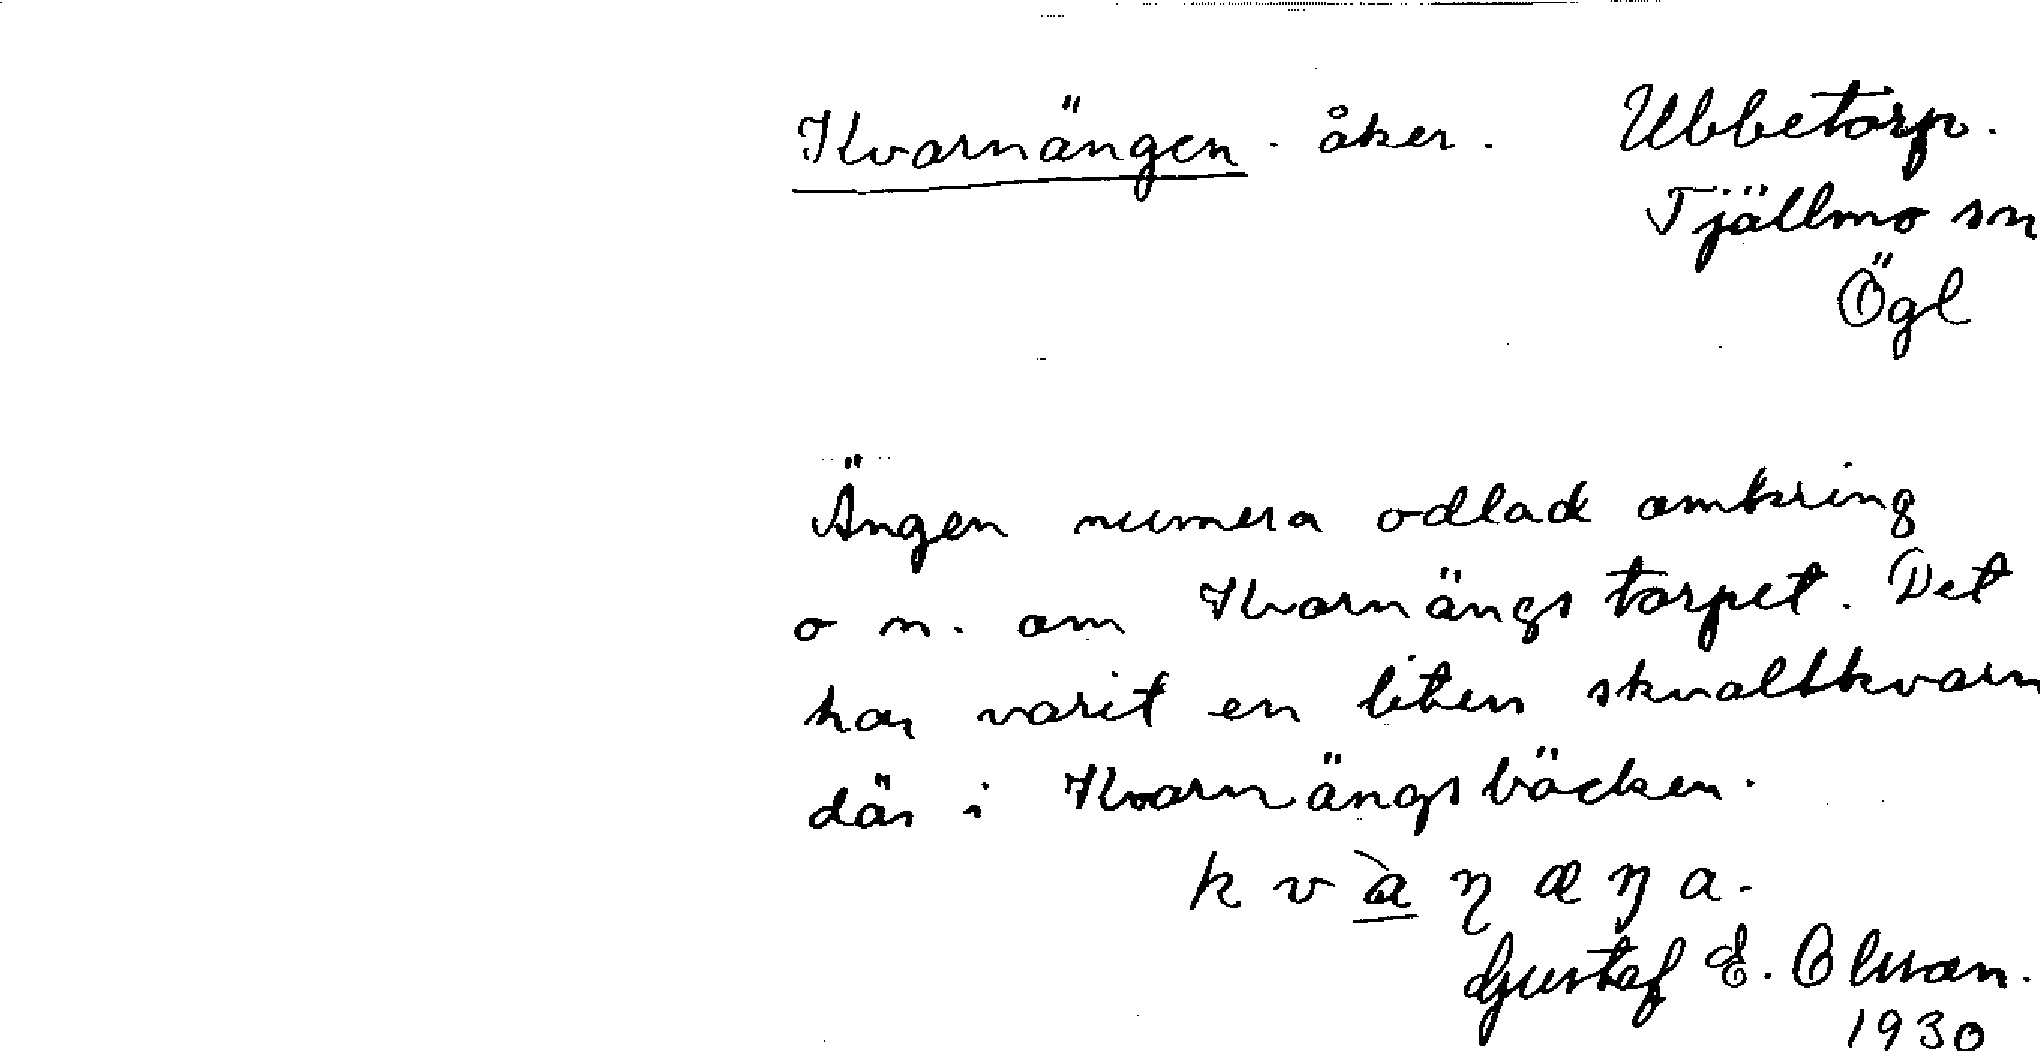 Kvarnängen. åker. Ubbetorp.
Tjällmo sn
Ögl
Ängen numera odlad omkring
o n. om Kvarnängstorpet. Det
har varit en liten skvaltkvarn
där i Kvarnängsbäcken.
k v à η æ ŋ a.
Gustaf E. Olsson.
1930